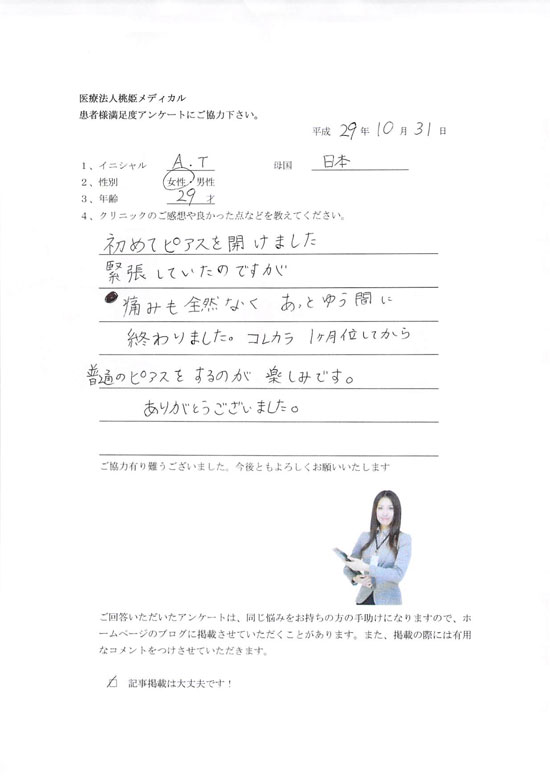 医療法人桃姫メディカル
患者様満足度アンケートにご協力下さい。
平成 29 年 10 月 31 日
1、イニシャル A.T 母国 日本
2、性別 女性・男性
3、年齢 29 才
4、クリニックのご感想や良かった点などを教えてください。
初めてピアスを開けました
緊張していたのですが
痛みも全然なく あっとゆう間に
終わりました。コレカラ 1ヶ月位してから
普通のピアスをするのが 楽しみです。
ありがとうございました。
ご協力有り難うございました。今後ともよろしくお願いいたします
ご回答いただいたアンケートは、同じ悩みをお持ちの方の手助けになりますので、ホ
ームページのブログに掲載させていただくことがあります。また、掲載の際には有用
なコメントをつけさせていただきます。
記事掲載は大丈夫です！